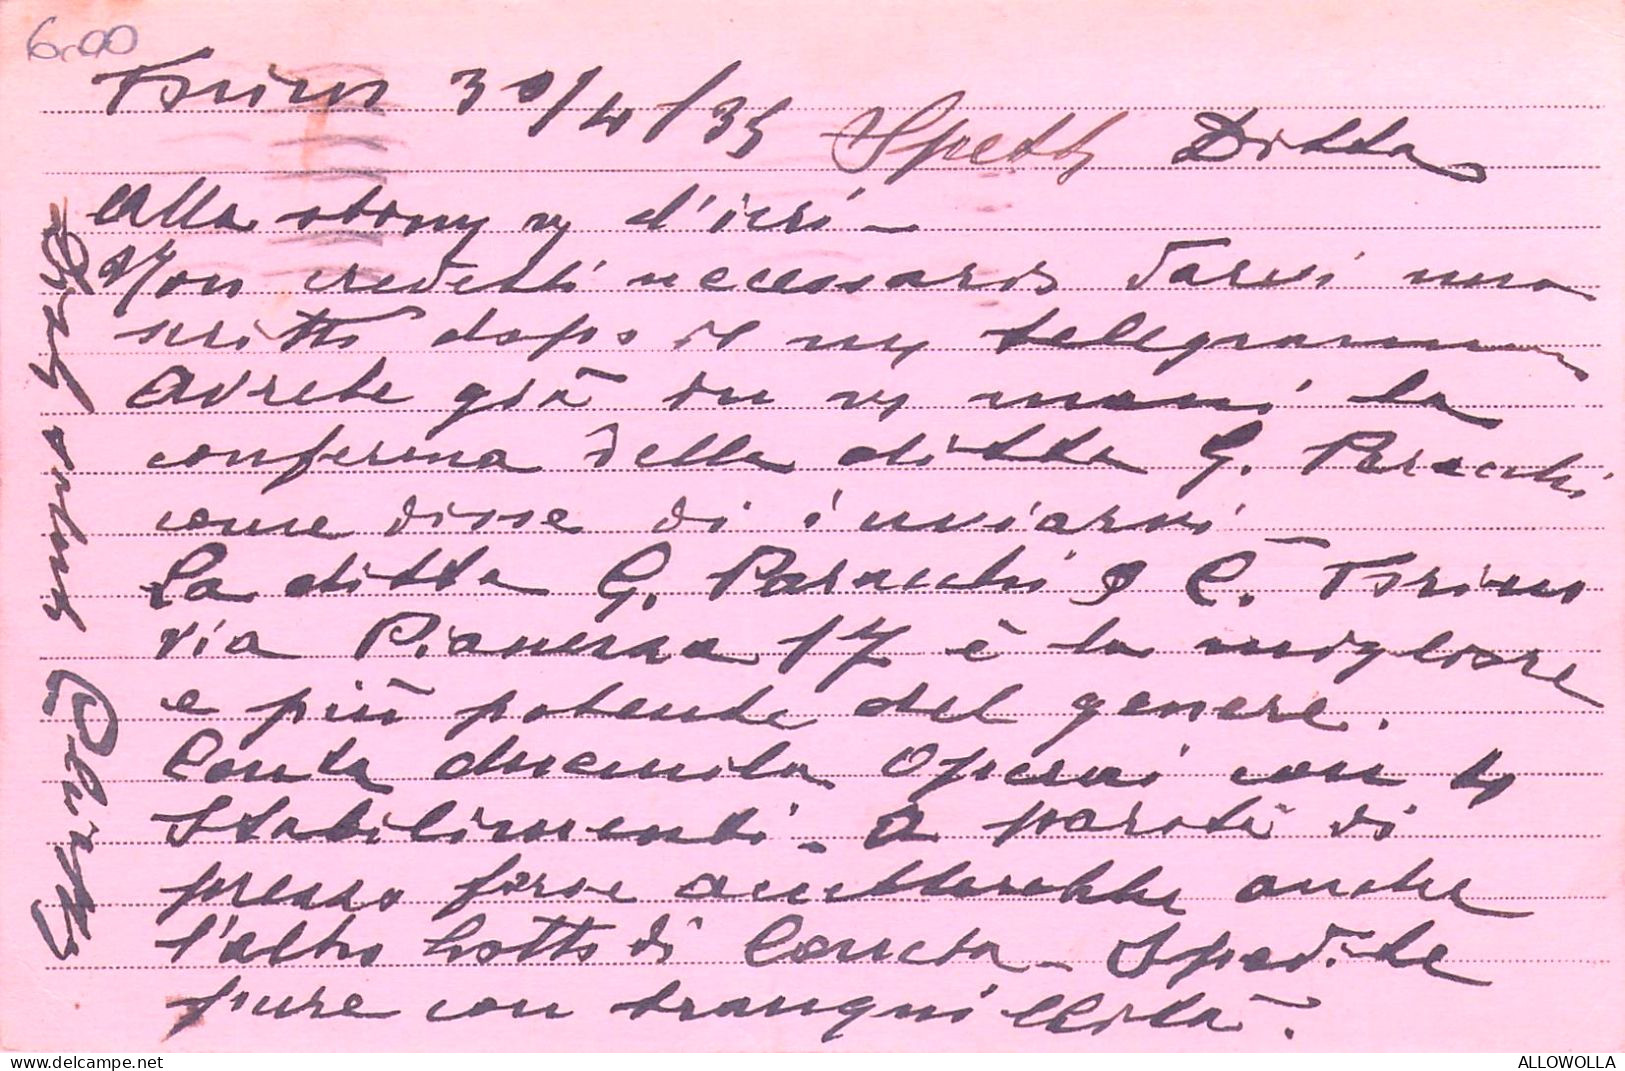 6.00
Torino 30/4/35 Spett Ditta
Alla stony vs d'ieri -
Non credetti necessario darvi uno
scritto dopo il ns telegramma
Avrete già in vs mani la
conferma della ditta G. Paracchi
come disse di inviarvi
La ditta G. Paracchi e C. Torino
via Pianezza 17 è la migliore
e più potente del genere.
Conta duemila Operai con
Stabilimenti - A parità di
prezzo forse accetterebbe anche
l'altro lotto di Concia - Spedite
pure con tranquillità.
delcampe.net
ALLOWOLLA